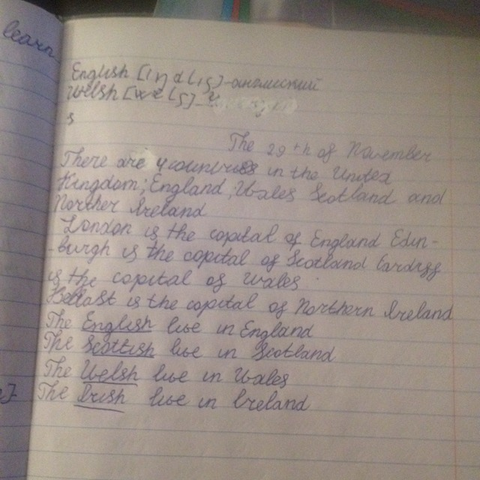 learn
English [ıŋɡlıʃ]-английский
Welsh [welʃ]-
s
The 29th of November
There are 4 countries in the United
Kingdom; England, Wales Scotland and
Norther Ireland
London is the capital of England Edin-
-burgh is the capital of Scotland Cardiff
is the capital of Wales.
Belfast is the capital of Northern Ireland
The English live in England
The Scottish live in Scotland
The Welsh live in Wales
The Irish live in Ireland